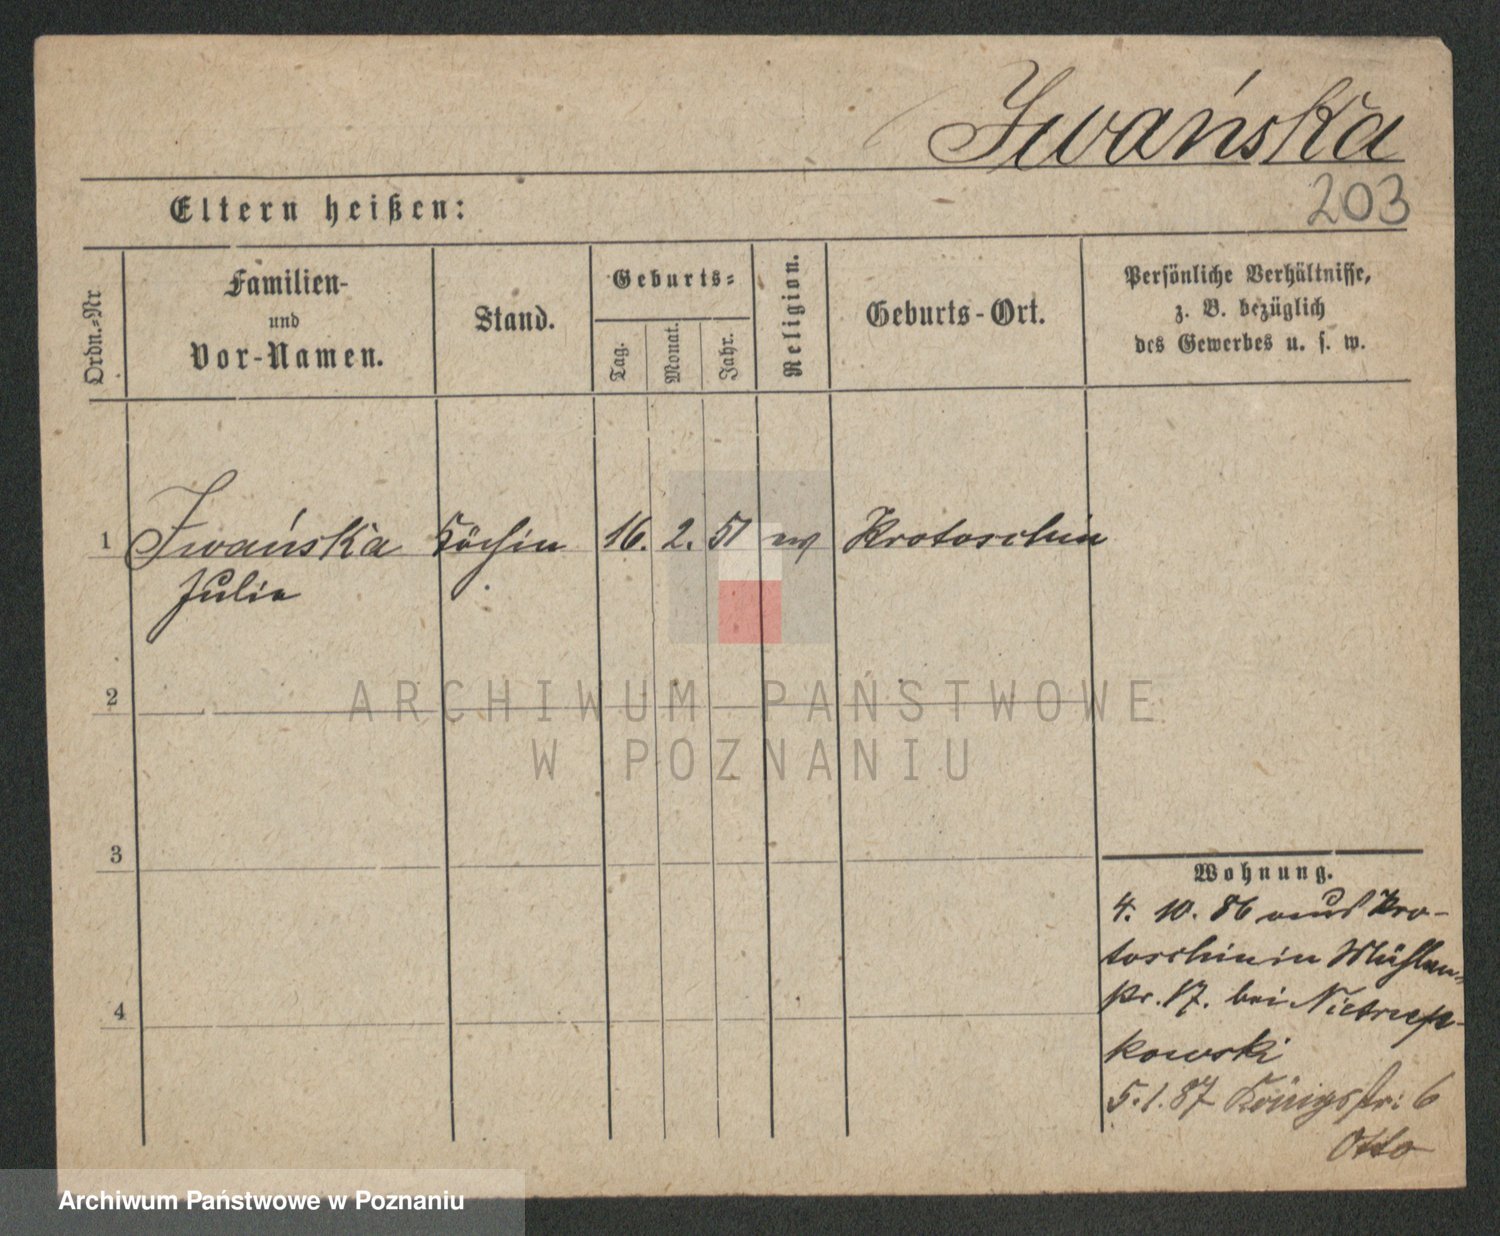 Iwańska
203
Eltern heißen:
Ordn.-Nr.
Familien-
und
Vor-Namen.
Stand.
Geburts-
Tag.
Monat.
Jahr.
Religion.
Geburts-Ort.
Persönliche Verhältnisse,
z. B. bezüglich
des Gewerbes u. s. w.
1 Iwańska Köchin 16. 2. 51 Krotoschin
Julie
2
3
4
Wohnung.
4. 10. 86 aus Kro-
toschin in Mühlen-
str. 17. bei
kowski
5. 1. 87 Königstr: 6
Otto
ARCHIWUM PAŃSTWOWE
W POZNANIU
Archiwum Państwowe w Poznaniu